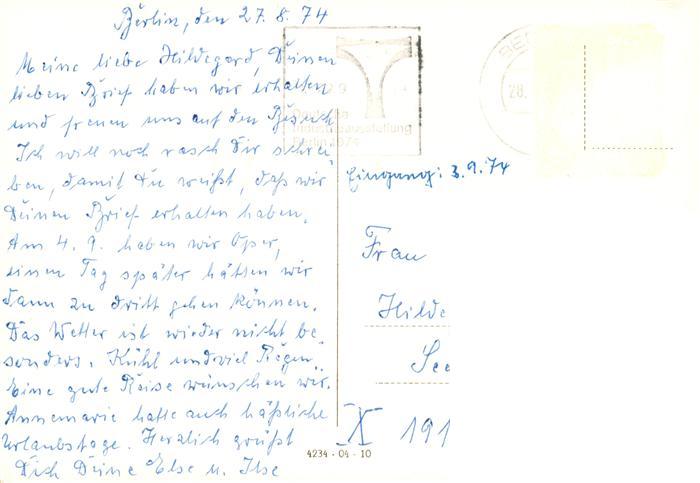 Berlin, den 27.8.74
Meine liebe Hildegard, Deinen
lieben Brief haben wir erhalten
und freuen uns auf den Besuch
Ich will noch rasch Dir schrei-
ben, damit Du weißt, daß wir
Deinen Brief erhalten haben.
Am 4. 9. haben wir Oper,
einen Tag später hätten wir
dann zu dritt gehen können.
Das Wetter ist wieder nicht be-
sonders. Kühl und viel Regen.
Eine gute Reise wünschen wir.
Annemarie hatte auch häßliche
Urlaubstage. Herzlich grüßt
Dich Deine Else u. Ilse
Deutsche
Industrieausstellung
Berlin 1974
28.
Eingang: 3.9.74
Frau
Hilde
See
X 191
4234 - 04 - 10